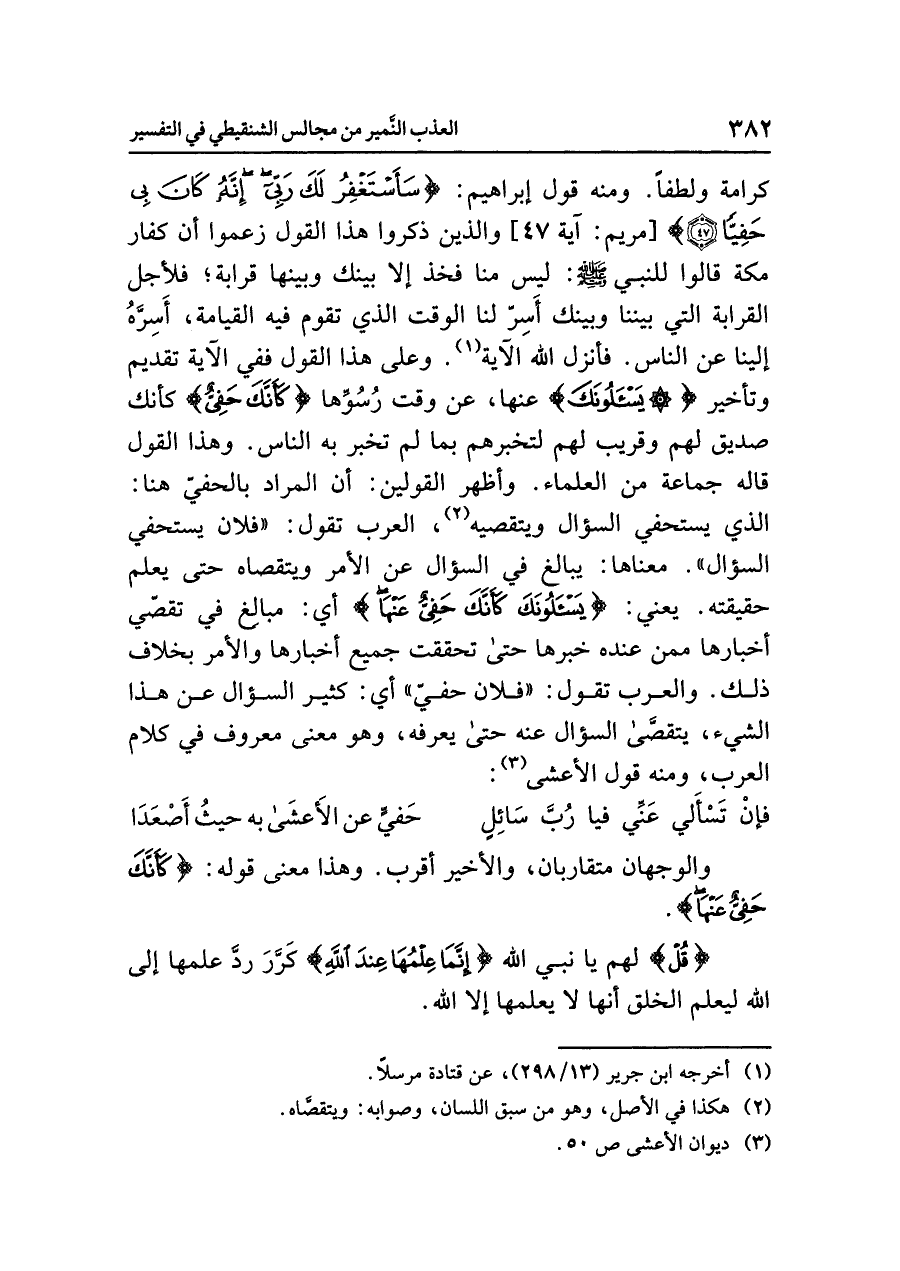 ٣٨٢ العذب النَّمير من مجالس الشنقيطي في التفسير
كرامة ولطفاً. ومنه قول إبراهيم: ﴿سَأَسْتَغْفِرُ لَكَ رَبِّيٓۖ إِنَّهُۥ كَانَ بِي
حَفِيّٗا ٤٧﴾ [مريم: آية ٤٧] والذين ذكروا هذا القول زعموا أن كفار
مكة قالوا للنبي ﷺ: ليس منا فخذ إلا بينك وبينها قرابة؛ فلأجل
القرابة التي بيننا وبينك أَسِرّ لنا الوقت الذي تقوم فيه القيامة، أَسِرَّهُ
إلينا عن الناس. فأنزل الله الآية(١). وعلى هذا القول ففي الآية تقديم
وتأخير ﴿۞ يَسْـَٔلُونَكَ﴾ عنها، عن وقت رُسُوِّها ﴿كَأَنَّكَ حَفِيٌّ﴾ كأنك
صديق لهم وقريب لهم لتخبرهم بما لم تخبر به الناس. وهذا القول
قاله جماعة من العلماء. وأظهر القولين: أن المراد بالحفيّ هنا:
الذي يستحفي السؤال ويتقصيه(٢)، العرب تقول: «فلان يستحفي
السؤال». معناها: يبالغ في السؤال عن الأمر ويتقصاه حتى يعلم
حقيقته. يعني: ﴿يَسْـَٔلُونَكَ كَأَنَّكَ حَفِيٌّ عَنْهَاۖ﴾ أي: مبالغ في تقصّي
أخبارها ممن عنده خبرها حتىٰ تحققت جميع أخبارها والأمر بخلاف
ذلك. والعرب تقول: «فلان حفيّ» أي: كثير السؤال عن هذا
الشيء، يتقصَّىٰ السؤال عنه حتىٰ يعرفه، وهو معنى معروف في كلام
العرب، ومنه قول الأعشى(٣):
فإنْ تَسْألي عَنِّي فيا رُبَّ سَائِلٍ حَفيٍّ عن الأَعشَىٰ به حيثُ أَصْعَدَا
والوجهان متقاربان، والأخير أقرب. وهذا معنى قوله: ﴿كَأَنَّكَ
حَفِيٌّ عَنْهَاۖ﴾.
﴿قُلْ﴾ لهم يا نبي الله ﴿إِنَّمَا عِلْمُهَا عِندَ ٱللَّهِ﴾ كَرَّرَ ردَّ علمها إلى
الله ليعلم الخلق أنها لا يعلمها إلا الله.
(١) أخرجه ابن جرير (١٣/ ٢٩٨)، عن قتادة مرسلاً.
(٢) هكذا في الأصل، وهو من سبق اللسان، وصوابه: ويتقصَّاه.
(٣) ديوان الأعشى ص ٥٠.